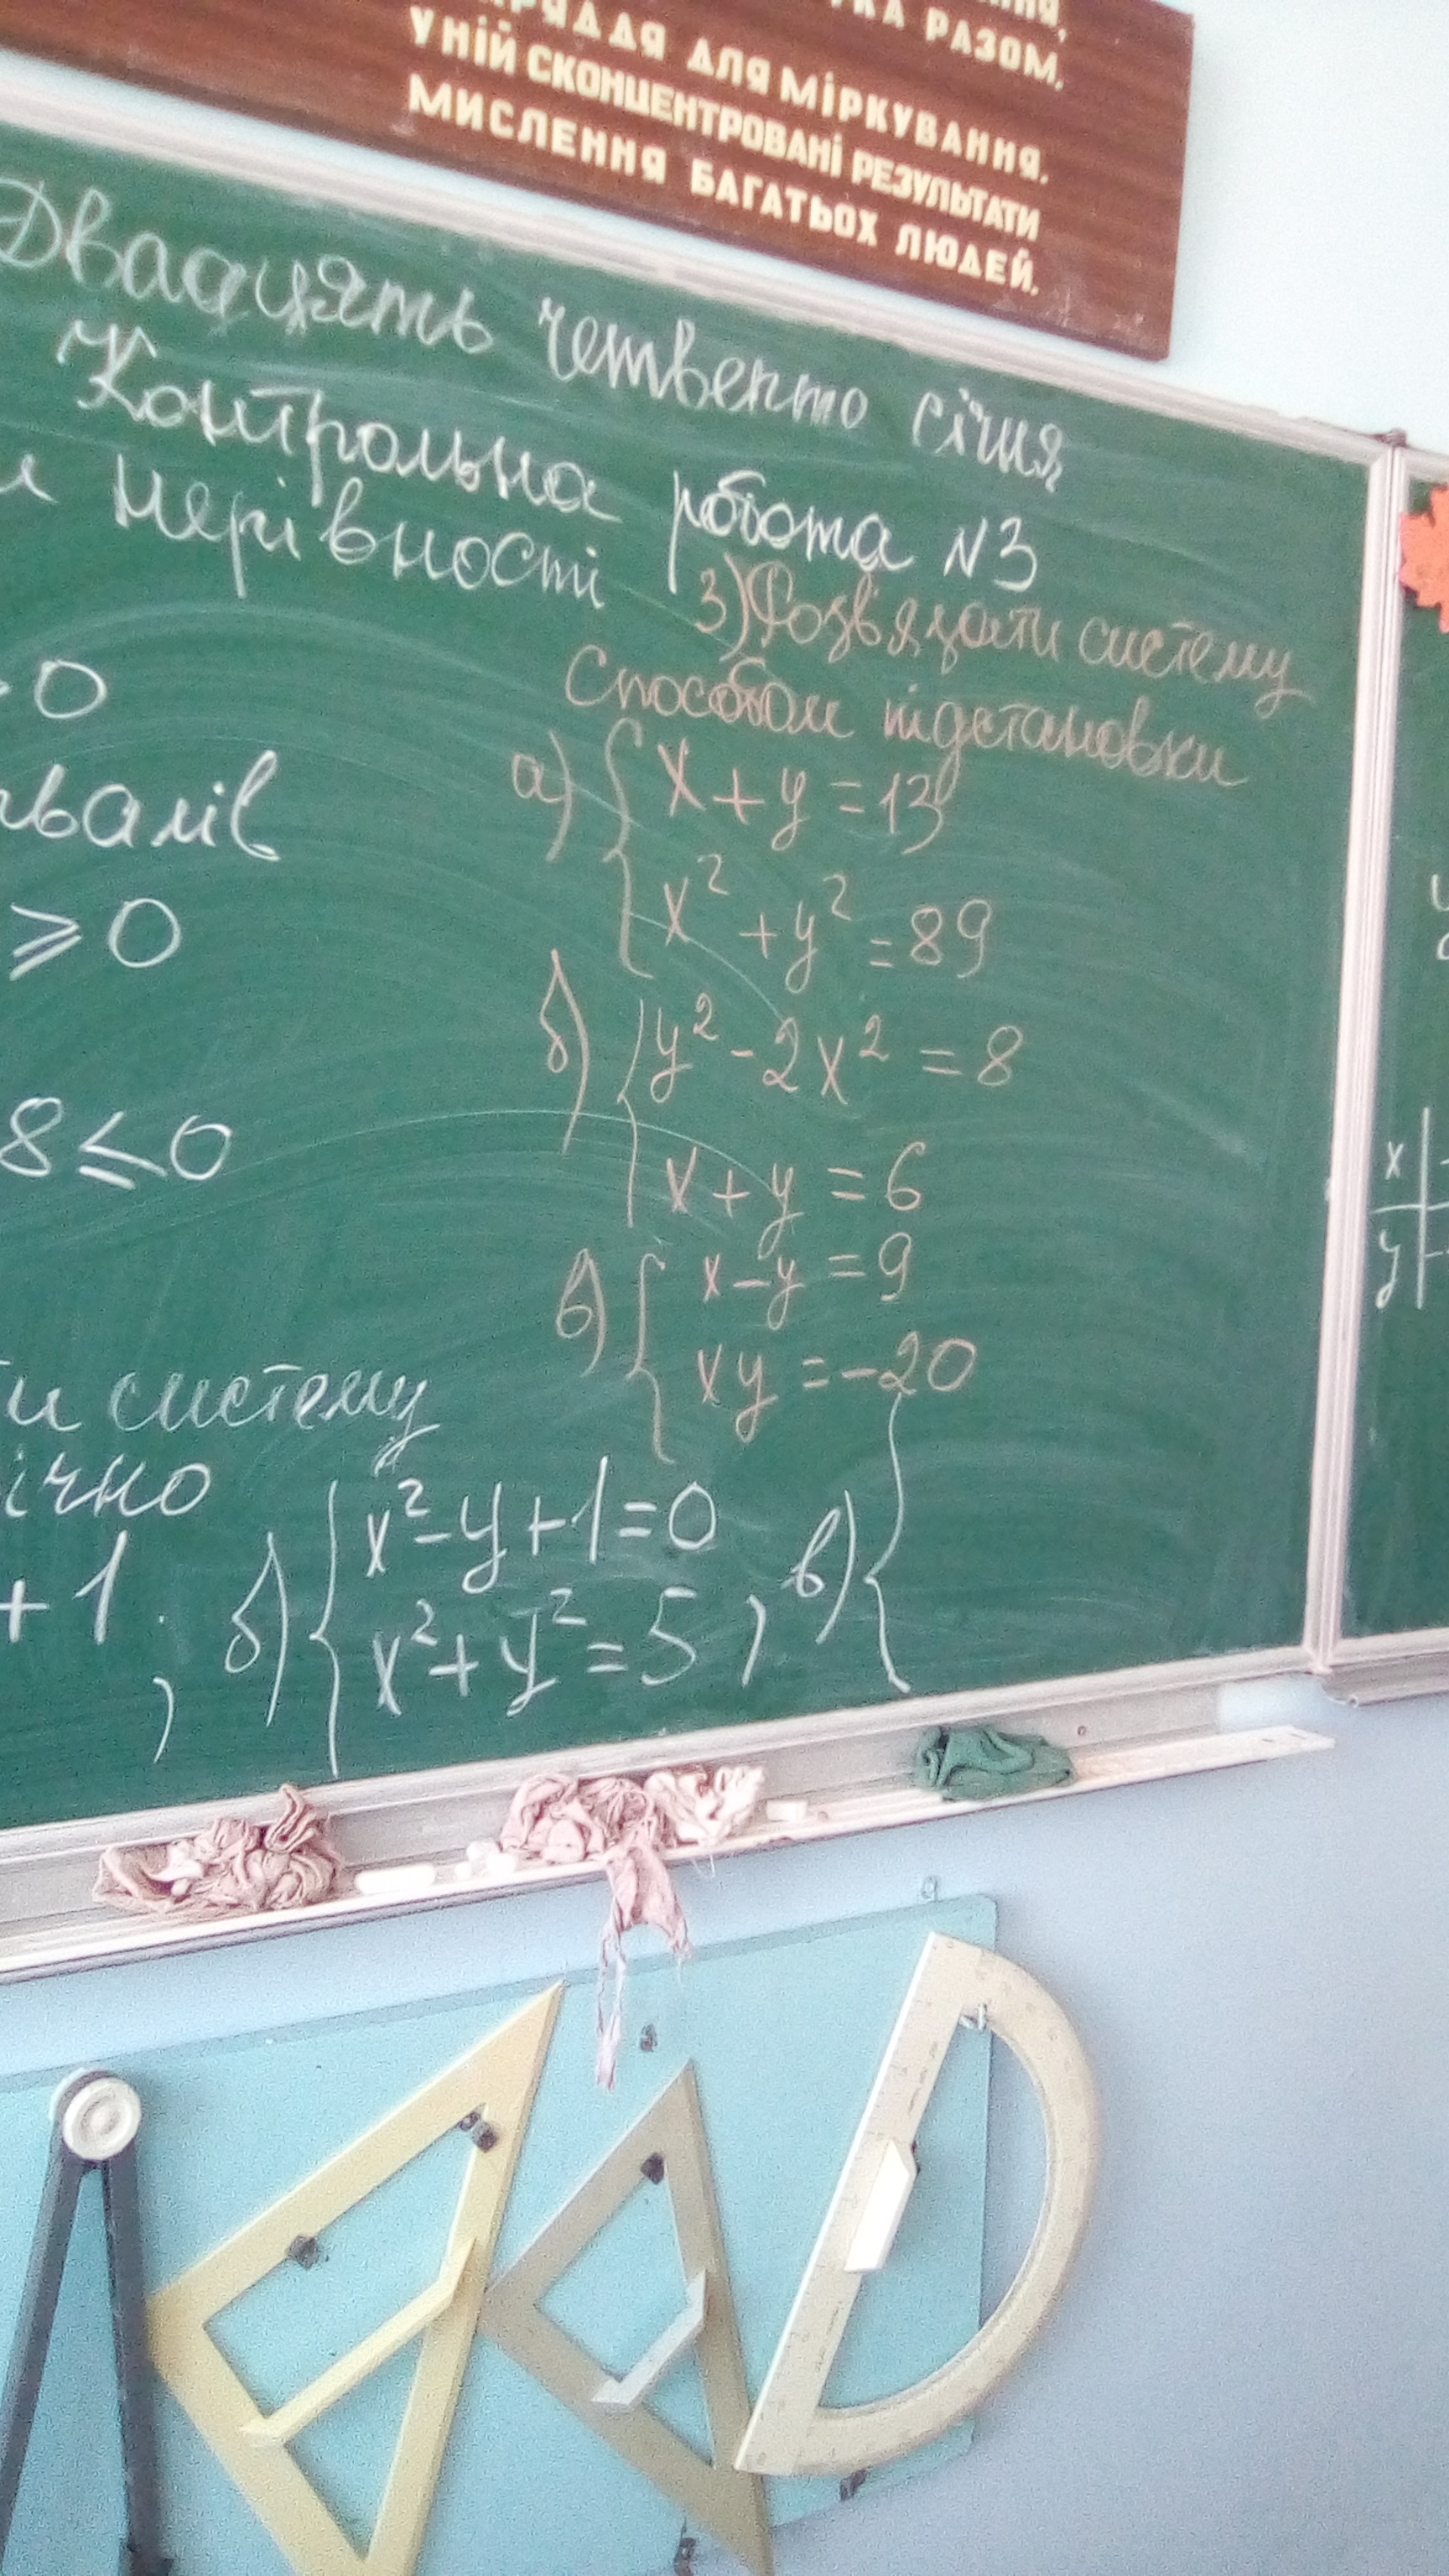 РАЗОМ,
ДЛЯ МІРКУВАННЯ.
У НІЙ СКОНЦЕНТРОВАНІ РЕЗУЛЬТАТИ
МИСЛЕННЯ БАГАТЬОХ ЛЮДЕЙ.
Двадцять четверто січня
Контрольна робота N3
нерівності
0
≥ 0
8 ≤ 0
3) Розв'язати систему
способом підстановки
а) { x + y = 13
x² + y² = 89
б) { y² - 2x² = 8
x + y = 6
в) { x - y = 9
xy = -20
систему
+ 1 ,
б) { x² - y + 1 = 0
x² + y² = 5 ,
в) {
x
y